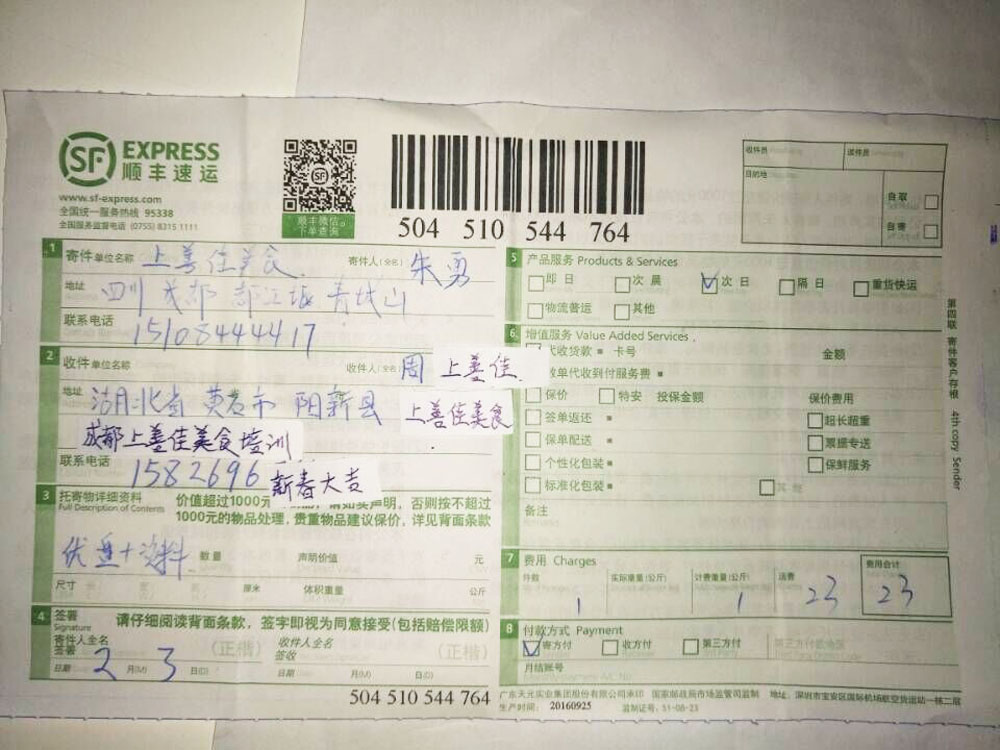 SF EXPRESS
顺丰速运
www.sf-express.com
全国统一服务热线 95338
全国服务监督电话 (0755) 8315 1111
SF
顺丰微信
下单查询
504 510 544 764
收件员
派件员
目的地
自取
自寄
1 寄件单位名称 上善佳美食 寄件人(全名) 朱勇
地址 四川 成都 都江堰 青城山
联系电话 15108444417
2 收件单位名称 收件人(全名) 周 上善佳
地址 湖北省 黄石市 阳新县 上善佳美食
成都上善佳美食培训
联系电话 1582696 新春大吉
3 托寄物详细资料 价值超过1000元 声明，否则按不超过
Full Description of Contents 1000元的物品处理，贵重物品建议保价，详见背面条款
料 数量 声明价值 元
尺寸 厘米 体积重量 公斤
4 签署 Signature 请仔细阅读背面条款，签字即视为同意接受(包括赔偿限额)
寄件人全名 签署 (正楷) 收件人全名 签收 (正楷)
日期 2 月(M) 3 日(D) 日期 月(M) 日(D)
504 510 544 764
5 产品服务 Products & Services
即日 次晨 次日 隔日 重货快运
物流普运 其他
6 增值服务 Value Added Services
代收货款 卡号 金额
单代收到付服务费
保价 特安 投保金额 保价费用
签单返还 超长超重
保单配送 票据专送
个性化包装 保鲜服务
标准化包装 其他
备注
7 费用 Charges
件数 实际重量(公斤) 计费重量(公斤) 运费 费用合计
1 1 23 23
8 付款方式 Payment
寄方付 收方付 第三方付 第三方付款地区
月结账号
广东天元实业集团股份有限公司承印 国家邮政局市场监管司监制 地址：深圳市宝安区国际机场航空货运站一栋二层
生产时间：20160925 监制证号：51-08-23
第四联 寄件客户存根 4th copy Sender